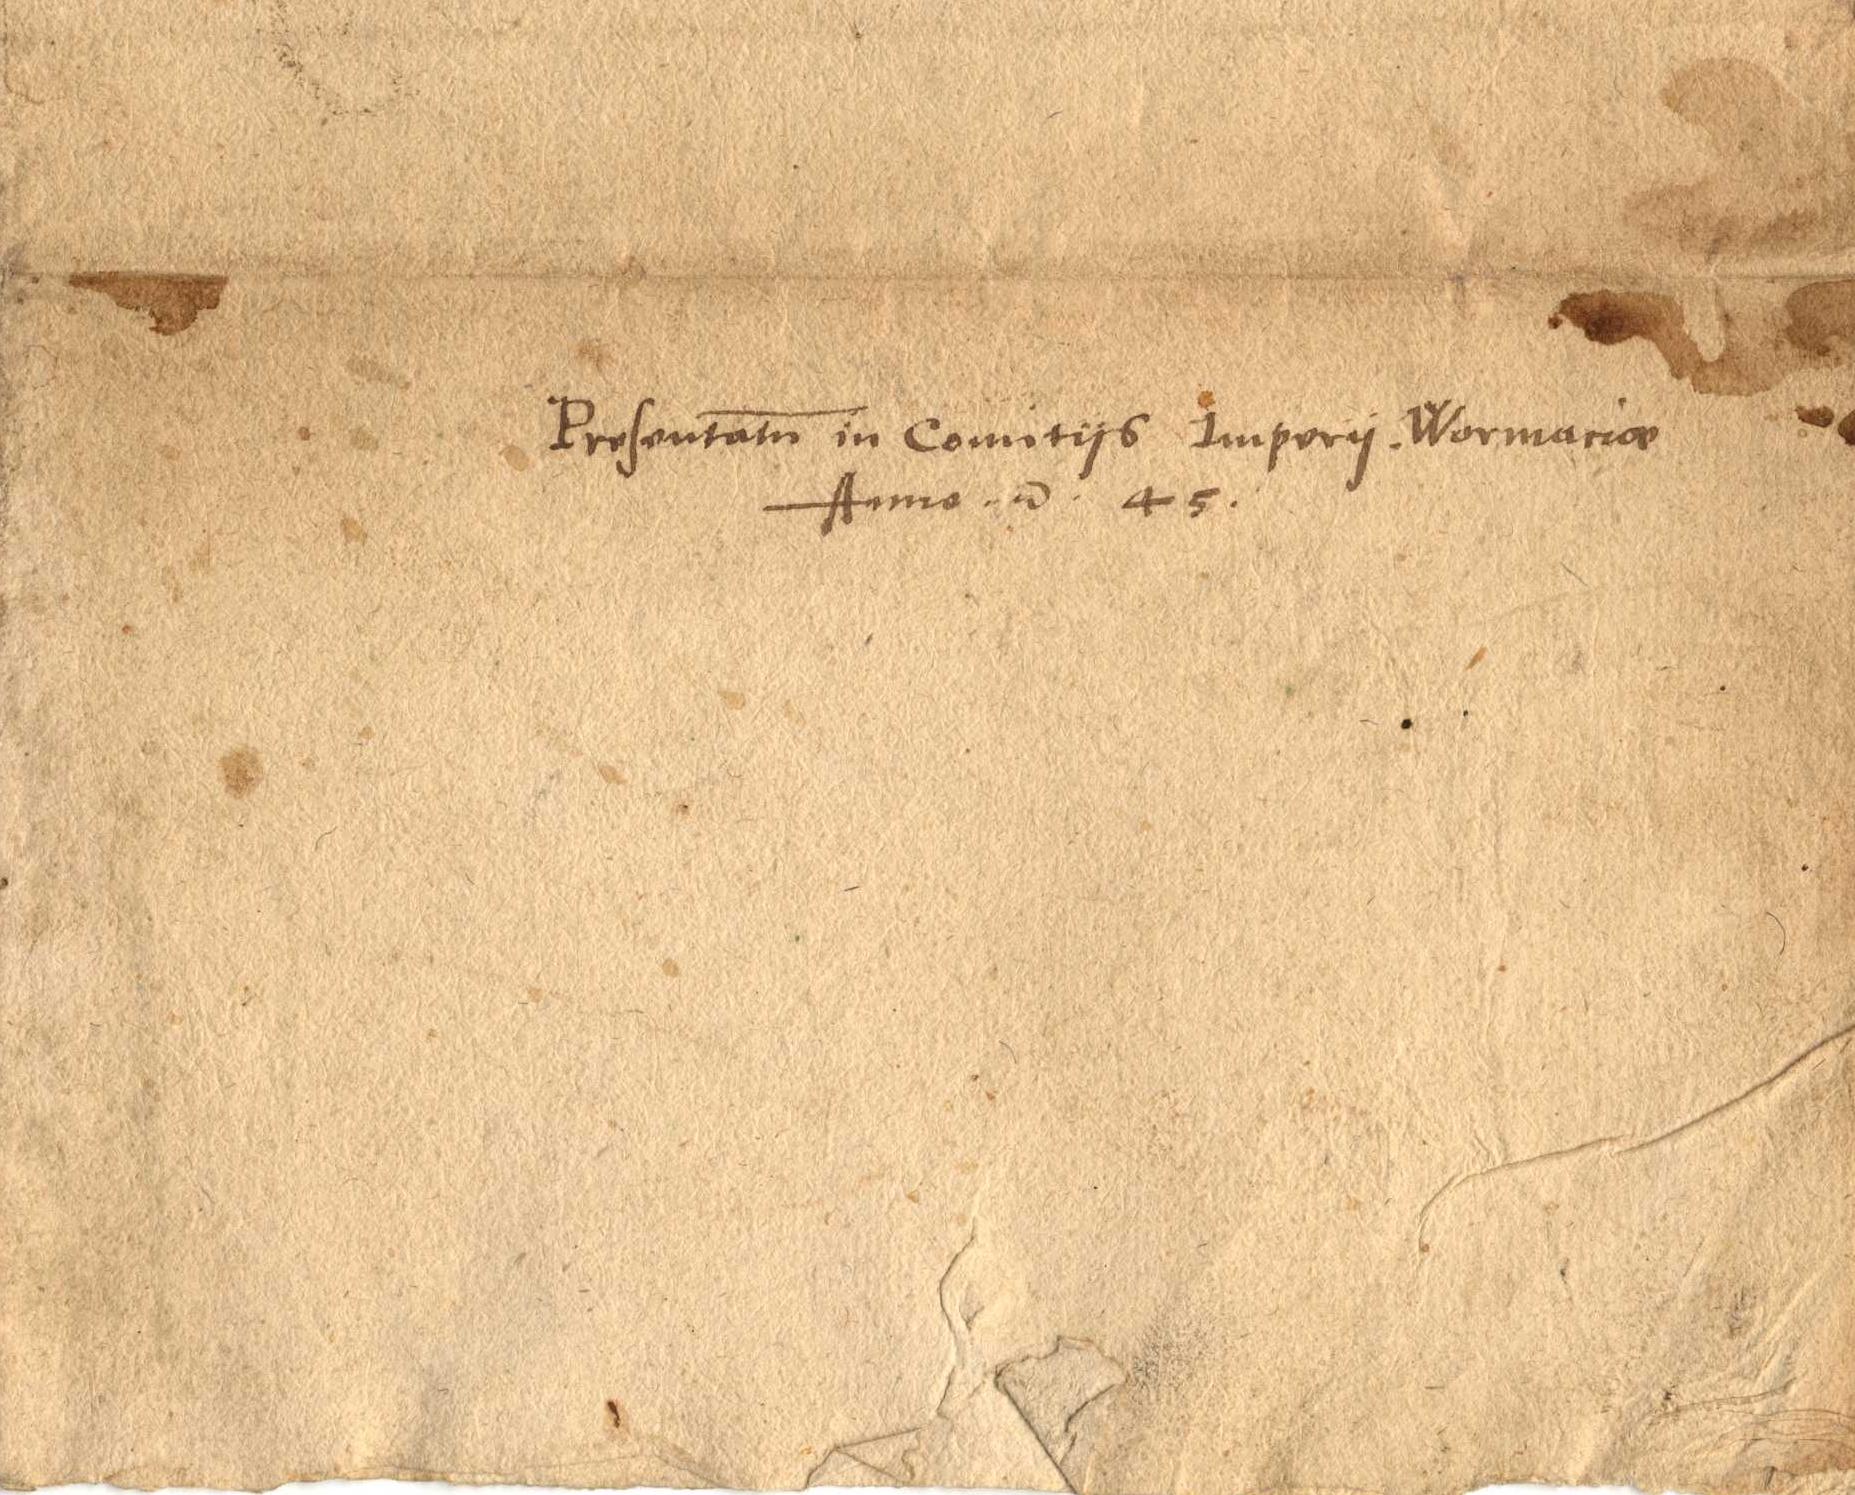 Presentatū in Comitijs Imperij. Wormaciæ
Anno. 45.